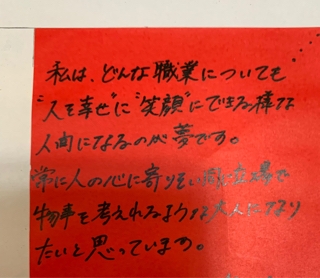 私は、どんな職業についても
"人を幸せ"に"笑顔"にできる様な
人間になるのが夢です。
常に人の心に寄りそい 立場で
物事を考えれるような大人になり
たいと思っています。